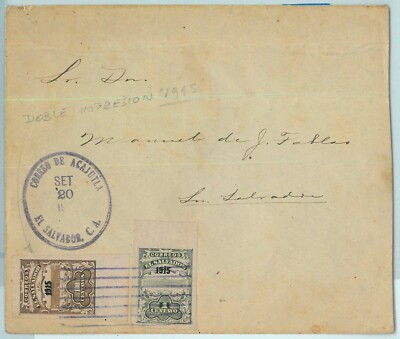 Sr. Don.
DOBLE IMPRESION "1915
Manuel de J. Fablas
San Salvador
CORREO DE ACAJUTLA
SET
20
EL SALVADOR, C. A.
CORREOS
EL SALVADOR
1915
CENTAVO
CORREOS
EL SALVADOR
1915
1
CENTAVO